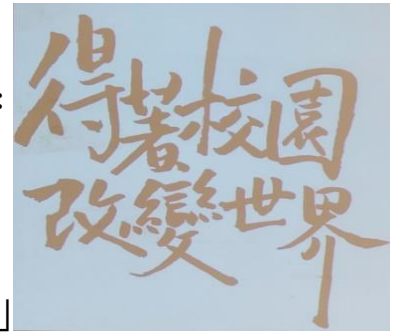 得著校園
改變世界